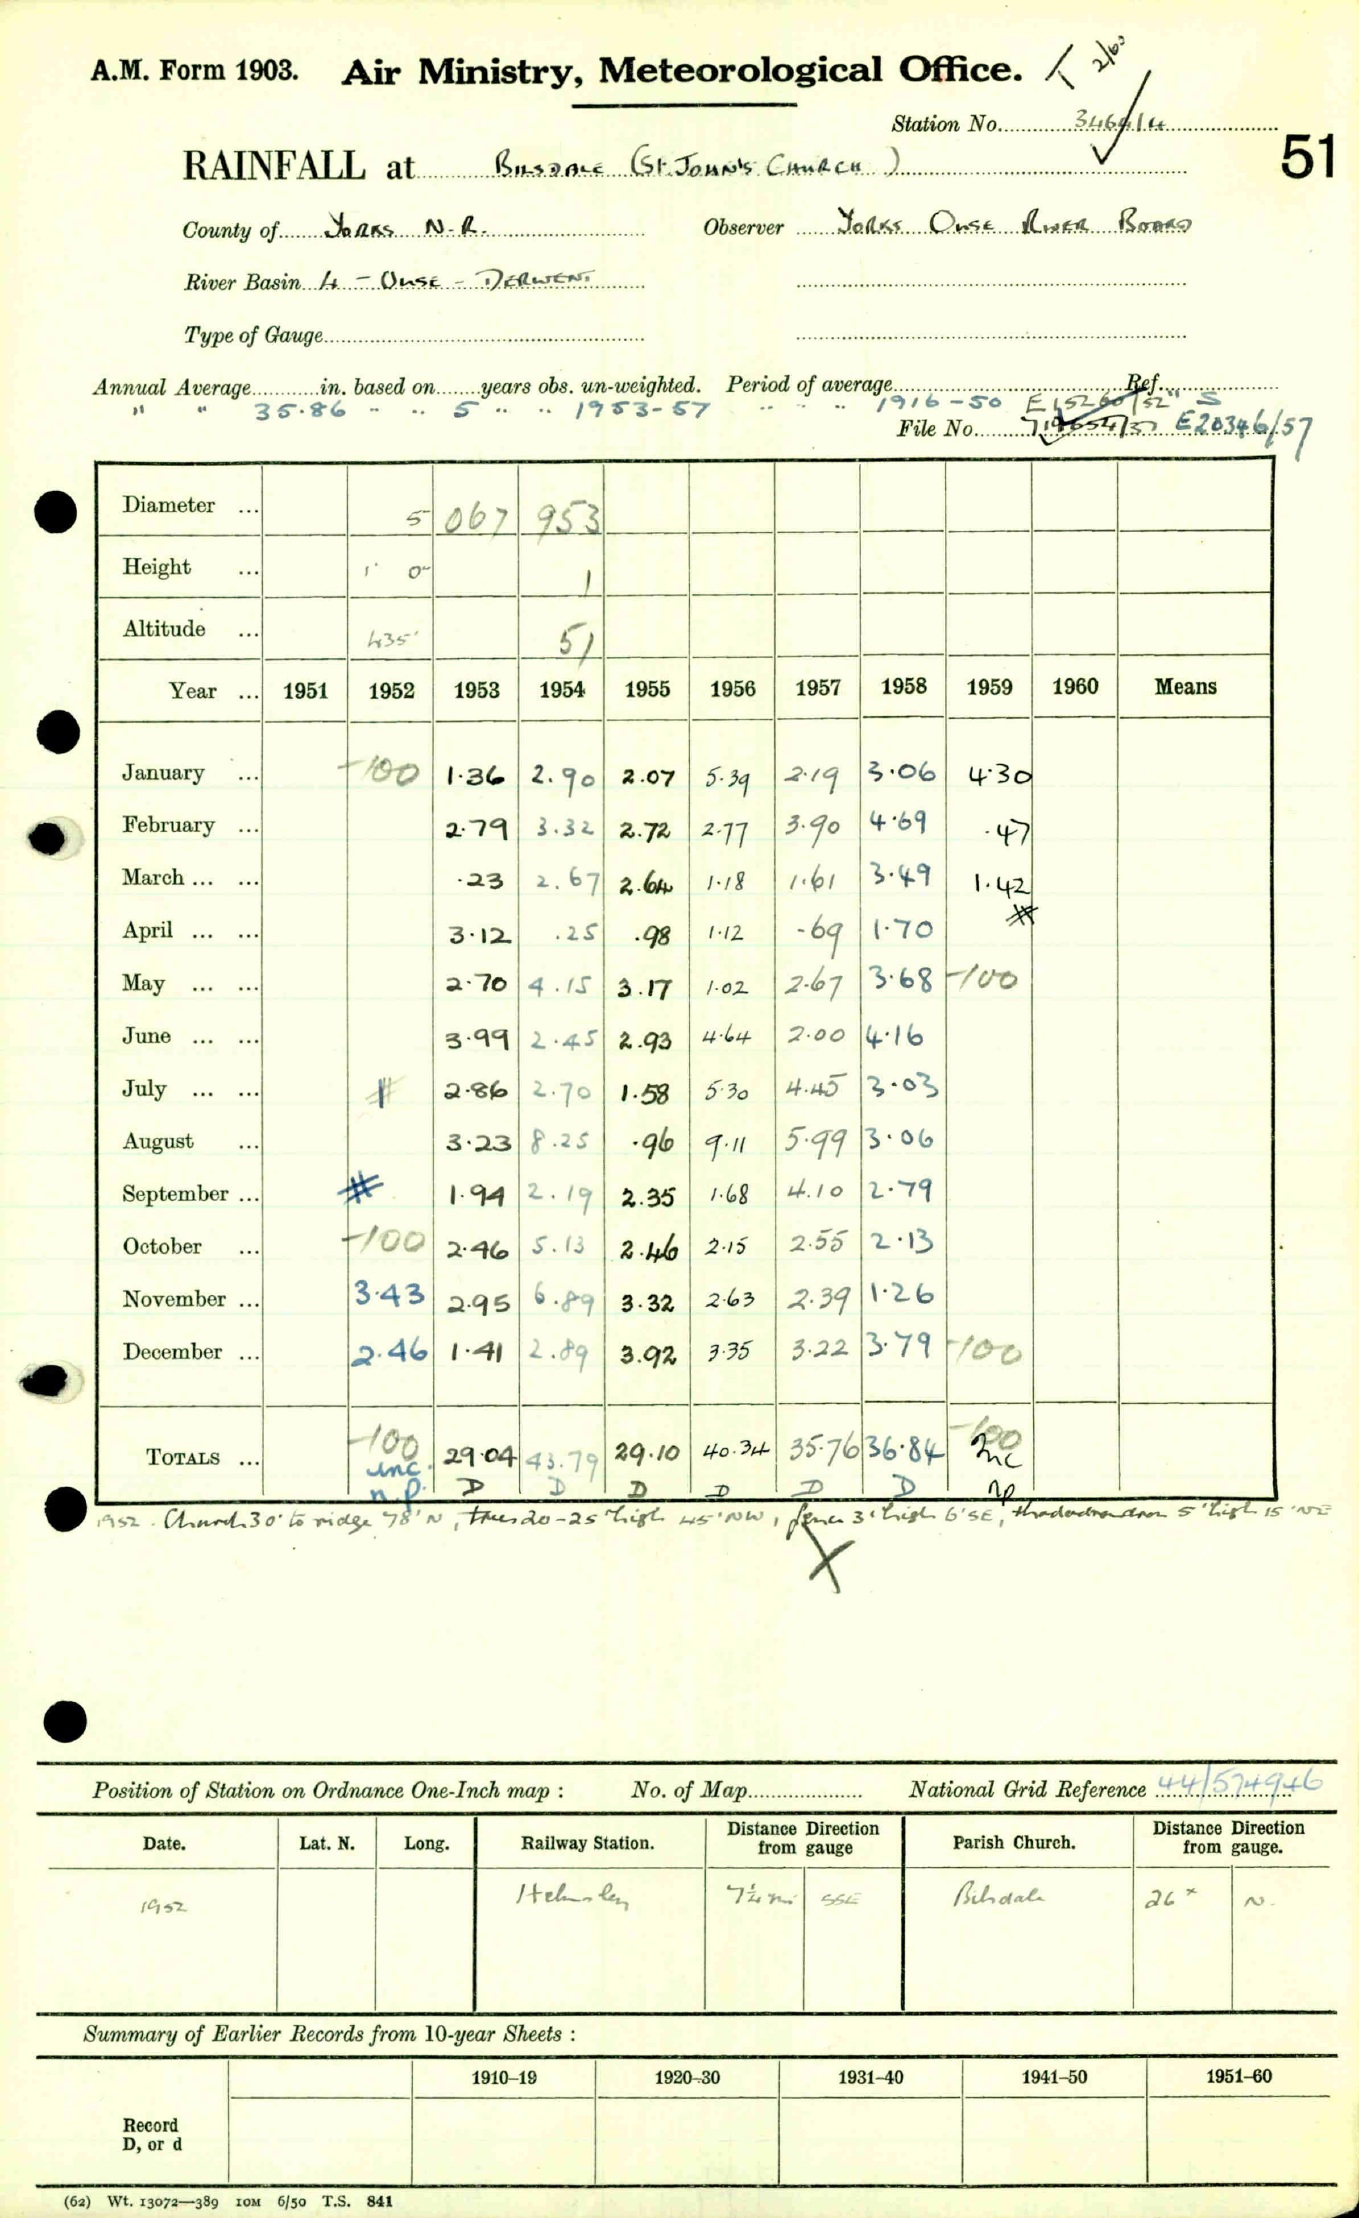 A.M. Form 1903. Air Ministry, Meteorological Office. 2/60
Station No. 3464/4
51
RAINFALL at BILSDALE (ST. JOHN'S CHURCH)
County of YORKS N.R. Observer YORKS OUSE RIVER BOARD
River Basin 4 - OUSE - DERWENT
Type of Gauge
Annual Average in. based on years obs. un-weighted. Period of average Ref.
" " 35.86 " " 5 " " 1953-57 " " " 1916-50 E15260/52 " S
File No. E20346/57
Diameter ... 5 067 953
Height ... 1' 0" 1
Altitude ... 435' 51
Year ... 1951 1952 1953 1954 1955 1956 1957 1958 1959 1960 Means
January ... -100 1.36 2.90 2.07 5.39 2.19 3.06 4.30
February ... 2.79 3.32 2.72 2.77 3.90 4.69 .47
March ... ... .23 2.67 2.64 1.18 1.61 3.49 1.42
April ... ... 3.12 .25 .98 1.12 .69 1.70
May ... ... 2.70 4.15 3.17 1.02 2.67 3.68 -100
June ... ... 3.99 2.45 2.93 4.64 2.00 4.16
July ... ... 2.86 2.70 1.58 5.30 4.45 3.03
August ... 3.23 8.25 .96 9.11 5.99 3.06
September ... 1.94 2.19 2.35 1.68 4.10 2.79
October ... -100 2.46 5.13 2.46 2.15 2.55 2.13
November ... 3.43 2.95 6.89 3.32 2.63 2.39 1.26
December ... 2.46 1.41 2.89 3.92 3.35 3.22 3.79 -100
TOTALS ... -100 29.04 43.79 29.10 40.34 35.76 36.84 -100
inc. Inc
n.p. D D D D D D np
1952. Church 30' to ridge 78' N, trees 20-25' high 45' NW, fence 3' high 6' SE, rhododendron 5' high 15' NE
X
Position of Station on Ordnance One-Inch map : No. of Map National Grid Reference 44/574946
Date. Lat. N. Long. Railway Station. Distance Direction from gauge Parish Church. Distance Direction from gauge.
1952 Helmsley 7¼ mi SSE Bilsdale 26 x N.
Summary of Earlier Records from 10-year Sheets :
1910–19 1920–30 1931–40 1941–50 1951–60
Record
D, or d
(62) Wt. 13072—389 10M 6/50 T.S. 841